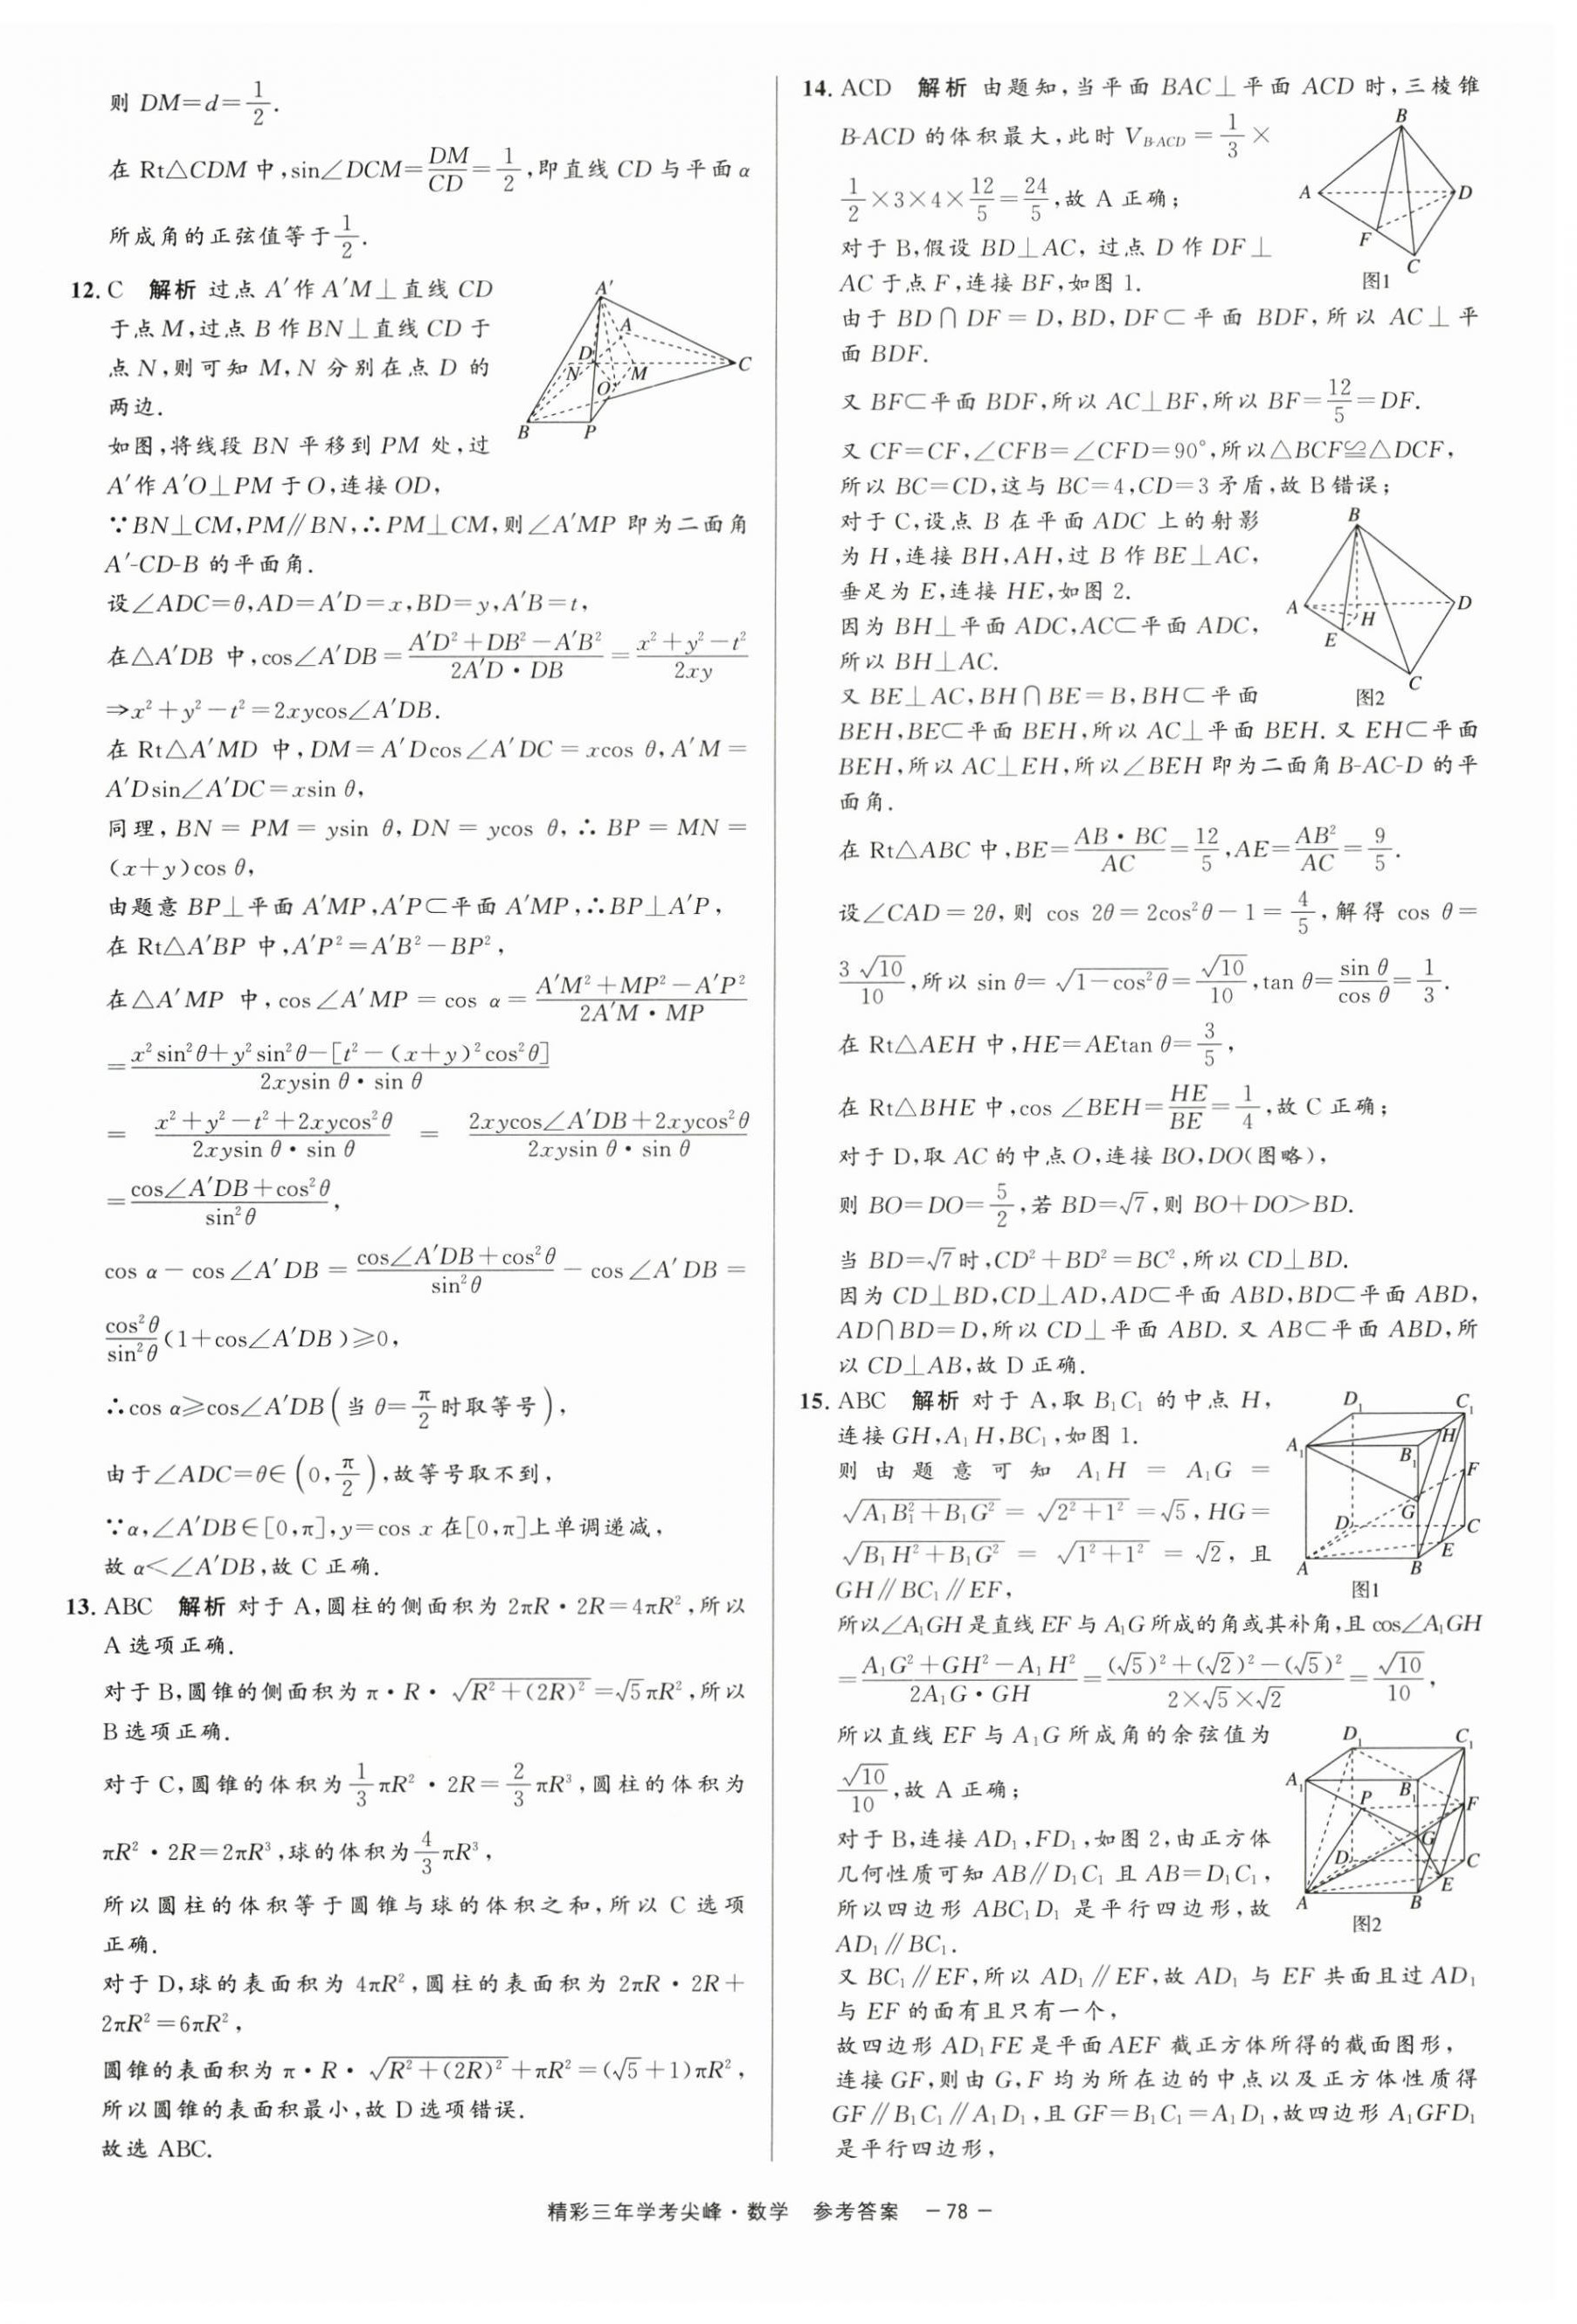 则 DM=d=1/2.
在 Rt△CDM 中,sin∠DCM=DM/CD=1/2,即直线 CD 与平面 α
所成角的正弦值等于1/2.
12. C 解析 过点 A′作 A′M⊥直线 CD
于点 M,过点 B 作 BN⊥直线 CD 于
点 N,则可知 M,N 分别在点 D 的
两边.
如图,将线段 BN 平移到 PM 处,过
A′作 A′O⊥PM 于 O,连接 OD,
A′
A
D
N
M
C
O
B
P
∵BN⊥CM,PM∥BN,∴PM⊥CM,则∠A′MP 即为二面角
A′-CD-B 的平面角.
设∠ADC=θ,AD=A′D=x,BD=y,A′B=t,
在△A′DB 中,cos∠A′DB=(A′D²+DB²-A′B²)/(2A′D·DB)=(x²+y²-t²)/(2xy)
⇒x²+y²-t²=2xycos∠A′DB.
在 Rt△A′MD 中,DM=A′Dcos∠A′DC=xcos θ,A′M=
A′Dsin∠A′DC=xsin θ,
同理,BN=PM=ysin θ,DN=ycos θ,∴BP=MN=
(x+y)cos θ,
由题意 BP⊥平面 A′MP,A′P⊂平面 A′MP,∴BP⊥A′P,
在 Rt△A′BP 中,A′P²=A′B²-BP²,
在△A′MP 中,cos∠A′MP=cos α=(A′M²+MP²-A′P²)/(2A′M·MP)
=(x²sin²θ+y²sin²θ-[t²-(x+y)²cos²θ])/(2xysin θ·sin θ)
=(x²+y²-t²+2xycos²θ)/(2xysin θ·sin θ)=(2xycos∠A′DB+2xycos²θ)/(2xysin θ·sin θ)
=(cos∠A′DB+cos²θ)/(sin²θ),
cos α-cos∠A′DB=(cos∠A′DB+cos²θ)/(sin²θ)-cos∠A′DB=
(cos²θ)/(sin²θ)(1+cos∠A′DB)≥0,
∴cos α≥cos∠A′DB(当 θ=π/2时取等号),
由于∠ADC=θ∈(0,π/2),故等号取不到,
∵α,∠A′DB∈[0,π],y=cos x 在[0,π]上单调递减,
故 α<∠A′DB,故 C 正确.
13. ABC 解析 对于 A,圆柱的侧面积为 2πR·2R=4πR²,所以
A 选项正确.
对于 B,圆锥的侧面积为 π·R·√(R²+(2R)²)=√5πR²,所以
B 选项正确.
对于 C,圆锥的体积为1/3πR²·2R=2/3πR³,圆柱的体积为
πR²·2R=2πR³,球的体积为4/3πR³,
所以圆柱的体积等于圆锥与球的体积之和,所以 C 选项
正确.
对于 D,球的表面积为 4πR²,圆柱的表面积为 2πR·2R+
2πR²=6πR²,
圆锥的表面积为 π·R·√(R²+(2R)²)+πR²=(√5+1)πR²,
所以圆锥的表面积最小,故 D 选项错误.
故选 ABC.
14. ACD 解析 由题知,当平面 BAC⊥平面 ACD 时,三棱锥
B-ACD 的体积最大,此时 V_{B-ACD}=1/3×
1/2×3×4×12/5=24/5,故 A 正确;
对于 B,假设 BD⊥AC,过点 D 作 DF⊥
AC 于点 F,连接 BF,如图 1.
B
A
D
F
C
图1
由于 BD∩DF=D,BD,DF⊂平面 BDF,所以 AC⊥平
面 BDF.
又 BF⊂平面 BDF,所以 AC⊥BF,所以 BF=12/5=DF.
又 CF=CF,∠CFB=∠CFD=90°,所以△BCF≌△DCF,
所以 BC=CD,这与 BC=4,CD=3 矛盾,故 B 错误;
对于 C,设点 B 在平面 ADC 上的射影
为 H,连接 BH,AH,过 B 作 BE⊥AC,
垂足为 E,连接 HE,如图 2.
因为 BH⊥平面 ADC,AC⊂平面 ADC,
所以 BH⊥AC.
又 BE⊥AC,BH∩BE=B,BH⊂平面
B
A
D
H
E
C
图2
BEH,BE⊂平面 BEH,所以 AC⊥平面 BEH.又 EH⊂平面
BEH,所以 AC⊥EH,所以∠BEH 即为二面角 B-AC-D 的平
面角.
在 Rt△ABC 中,BE=(AB·BC)/AC=12/5,AE=AB²/AC=9/5.
设∠CAD=2θ,则 cos 2θ=2cos²θ-1=4/5,解得 cos θ=
3√10/10,所以 sin θ=√(1-cos²θ)=√10/10,tan θ=sin θ/cos θ=1/3.
在 Rt△AEH 中,HE=AEtan θ=3/5,
在 Rt△BHE 中,cos∠BEH=HE/BE=1/4,故 C 正确;
对于 D,取 AC 的中点 O,连接 BO,DO(图略),
则 BO=DO=5/2,若 BD=√7,则 BO+DO>BD.
当 BD=√7时,CD²+BD²=BC²,所以 CD⊥BD.
因为 CD⊥BD,CD⊥AD,AD⊂平面 ABD,BD⊂平面 ABD,
AD∩BD=D,所以 CD⊥平面 ABD.又 AB⊂平面 ABD,所
以 CD⊥AB,故 D 正确.
15. ABC 解析 对于 A,取 B₁C₁ 的中点 H,
连接 GH,A₁H,BC₁,如图 1.
则由题意可知 A₁H=A₁G=
√(A₁B₁²+B₁G²)=√(2²+1²)=√5,HG=
√(B₁H²+B₁G²)=√(1²+1²)=√2,且
GH∥BC₁∥EF,
D₁
C₁
A₁
B₁
H
F
G
D
C
E
A
B
图1
所以∠A₁GH 是直线 EF 与 A₁G 所成的角或其补角,且 cos∠A₁GH
=(A₁G²+GH²-A₁H²)/(2A₁G·GH)=((√5)²+(√2)²-(√5)²)/(2×√5×√2)=√10/10,
所以直线 EF 与 A₁G 所成角的余弦值为
√10/10,故 A 正确;
对于 B,连接 AD₁,FD₁,如图 2,由正方体
几何性质可知 AB∥D₁C₁ 且 AB=D₁C₁,
所以四边形 ABC₁D₁ 是平行四边形,故
AD₁∥BC₁.
D₁
C₁
A₁
B₁
P
F
G
D
C
E
A
B
图2
又 BC₁∥EF,所以 AD₁∥EF,故 AD₁ 与 EF 共面且过 AD₁
与 EF 的面有且只有一个,
故四边形 AD₁FE 是平面 AEF 截正方体所得的截面图形,
连接 GF,则由 G,F 均为所在边的中点以及正方体性质得
GF∥B₁C₁∥A₁D₁,且 GF=B₁C₁=A₁D₁,故四边形 A₁GFD₁
是平行四边形,
精彩三年学考尖峰·数学 参考答案 －78－